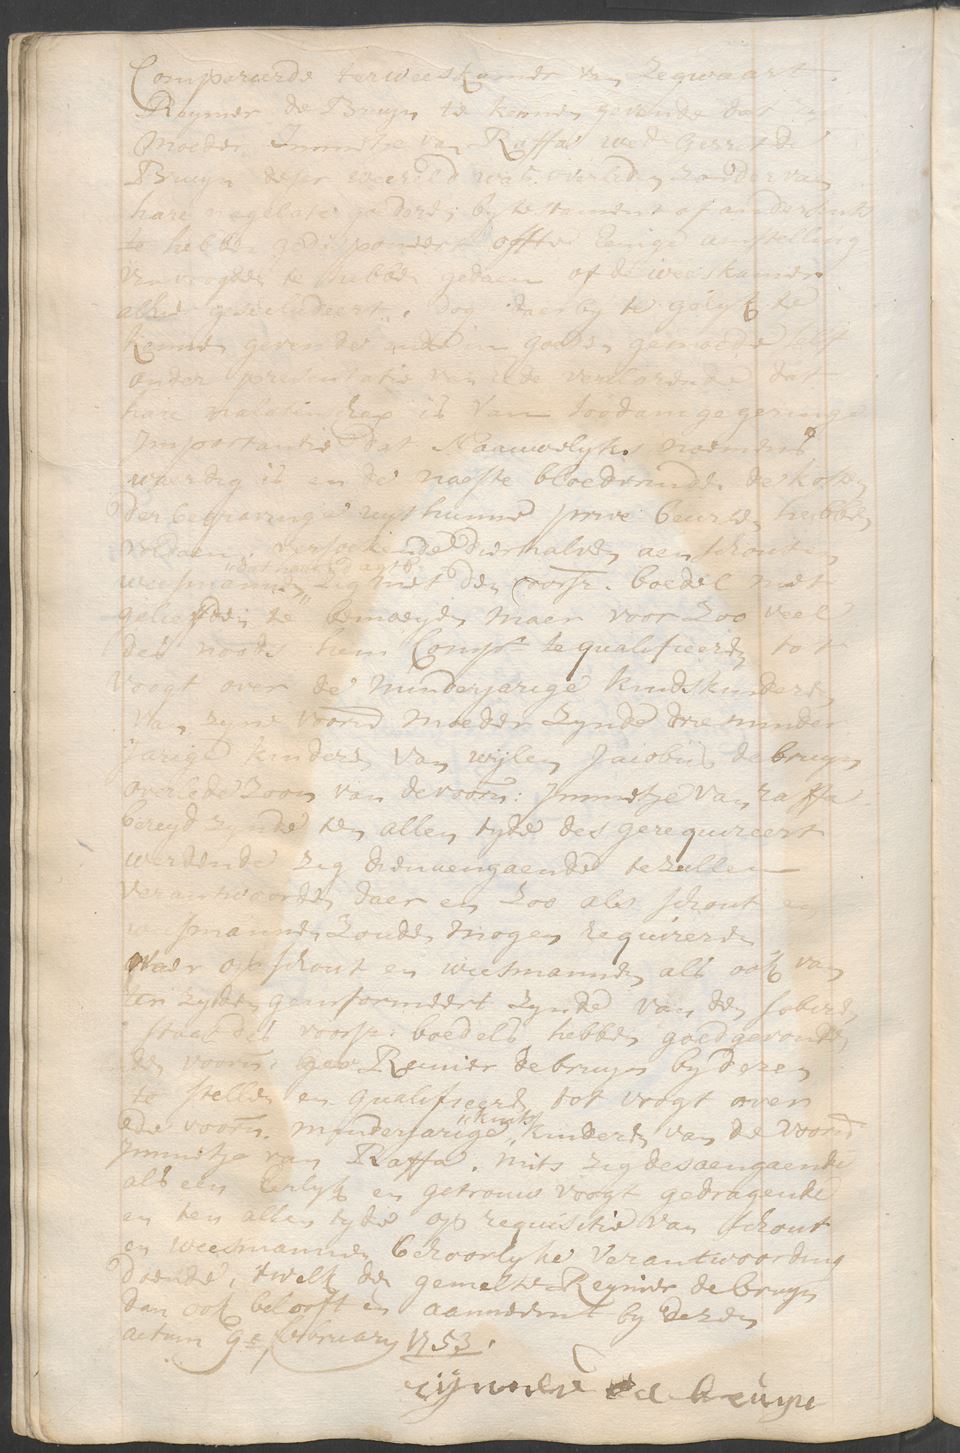 Compareerde ter weeskamer van Zegwaart
Reynier de Bruyn te kennen gevende dat zyn
moeder Immetje van Raffa wed: Gerrit de
Bruyn deser weereld was overleden zonder van
hare nagelate goederen by testament of andersints
te hebben gedisponeert ofte eenige aenstelling
van voogden te hebben gedaen of de weeskamer
alhier geseludeert, dog daerby te gelyk te
kennen gevende ende in goeden gemoede selfs
onder presentatie van ede verclarende dat
hare nalatenschap is van soodanige geringe
Importantie dat Naauwelyks noemens
waerdig is en de naeste bloedvrinden de kosten
der begravinge uyt hunne prive beurzen hebben
voldaen, versoekende derhalven aen schout en
weesmannen "dat haer E agtb" zig met den voorsz. boedel niet
gelieffden te bemoeyen maer voor zoo veel
des noods hem Compt. te qualificeeren tot
voogt over de minderjarige kindskinderen
van zyne voorn. moeder zynde drie minder
jarige kinderen van wylen Jacobus de bruyn
overlede zoon van de voorn: Immetje van raffa
bereyd zynde ten allen tyde des gerequireert
werdende zig dienaengaende te zullen
verantwoorden daer en zoo als schout en
weesmannen zouden mogen requireren
Waer op schout en weesmannen als ook van
ter zyden geinformeert zynde van den soberen
staat des voorsz: boedels hebben goedgevonden
den voorn: Reinier de bruyn by dezen
te stellen en qualificeeren tot voogt over
de voorn. minderjarige "kints" kinderen van de voorn.
Immetje van Raffa, mits zig desaengaende
als een Eerlyk en getrouw voogt gedragende
en ten allen tyde op requisitie van schout
en weesmannen behoorlyke verantwoording
doende, 'twelk de gemelte Reynier de bruyn
dan ook belooft en aanneemt by dezen
actum 9e february 1753.
rijnier de bruijn